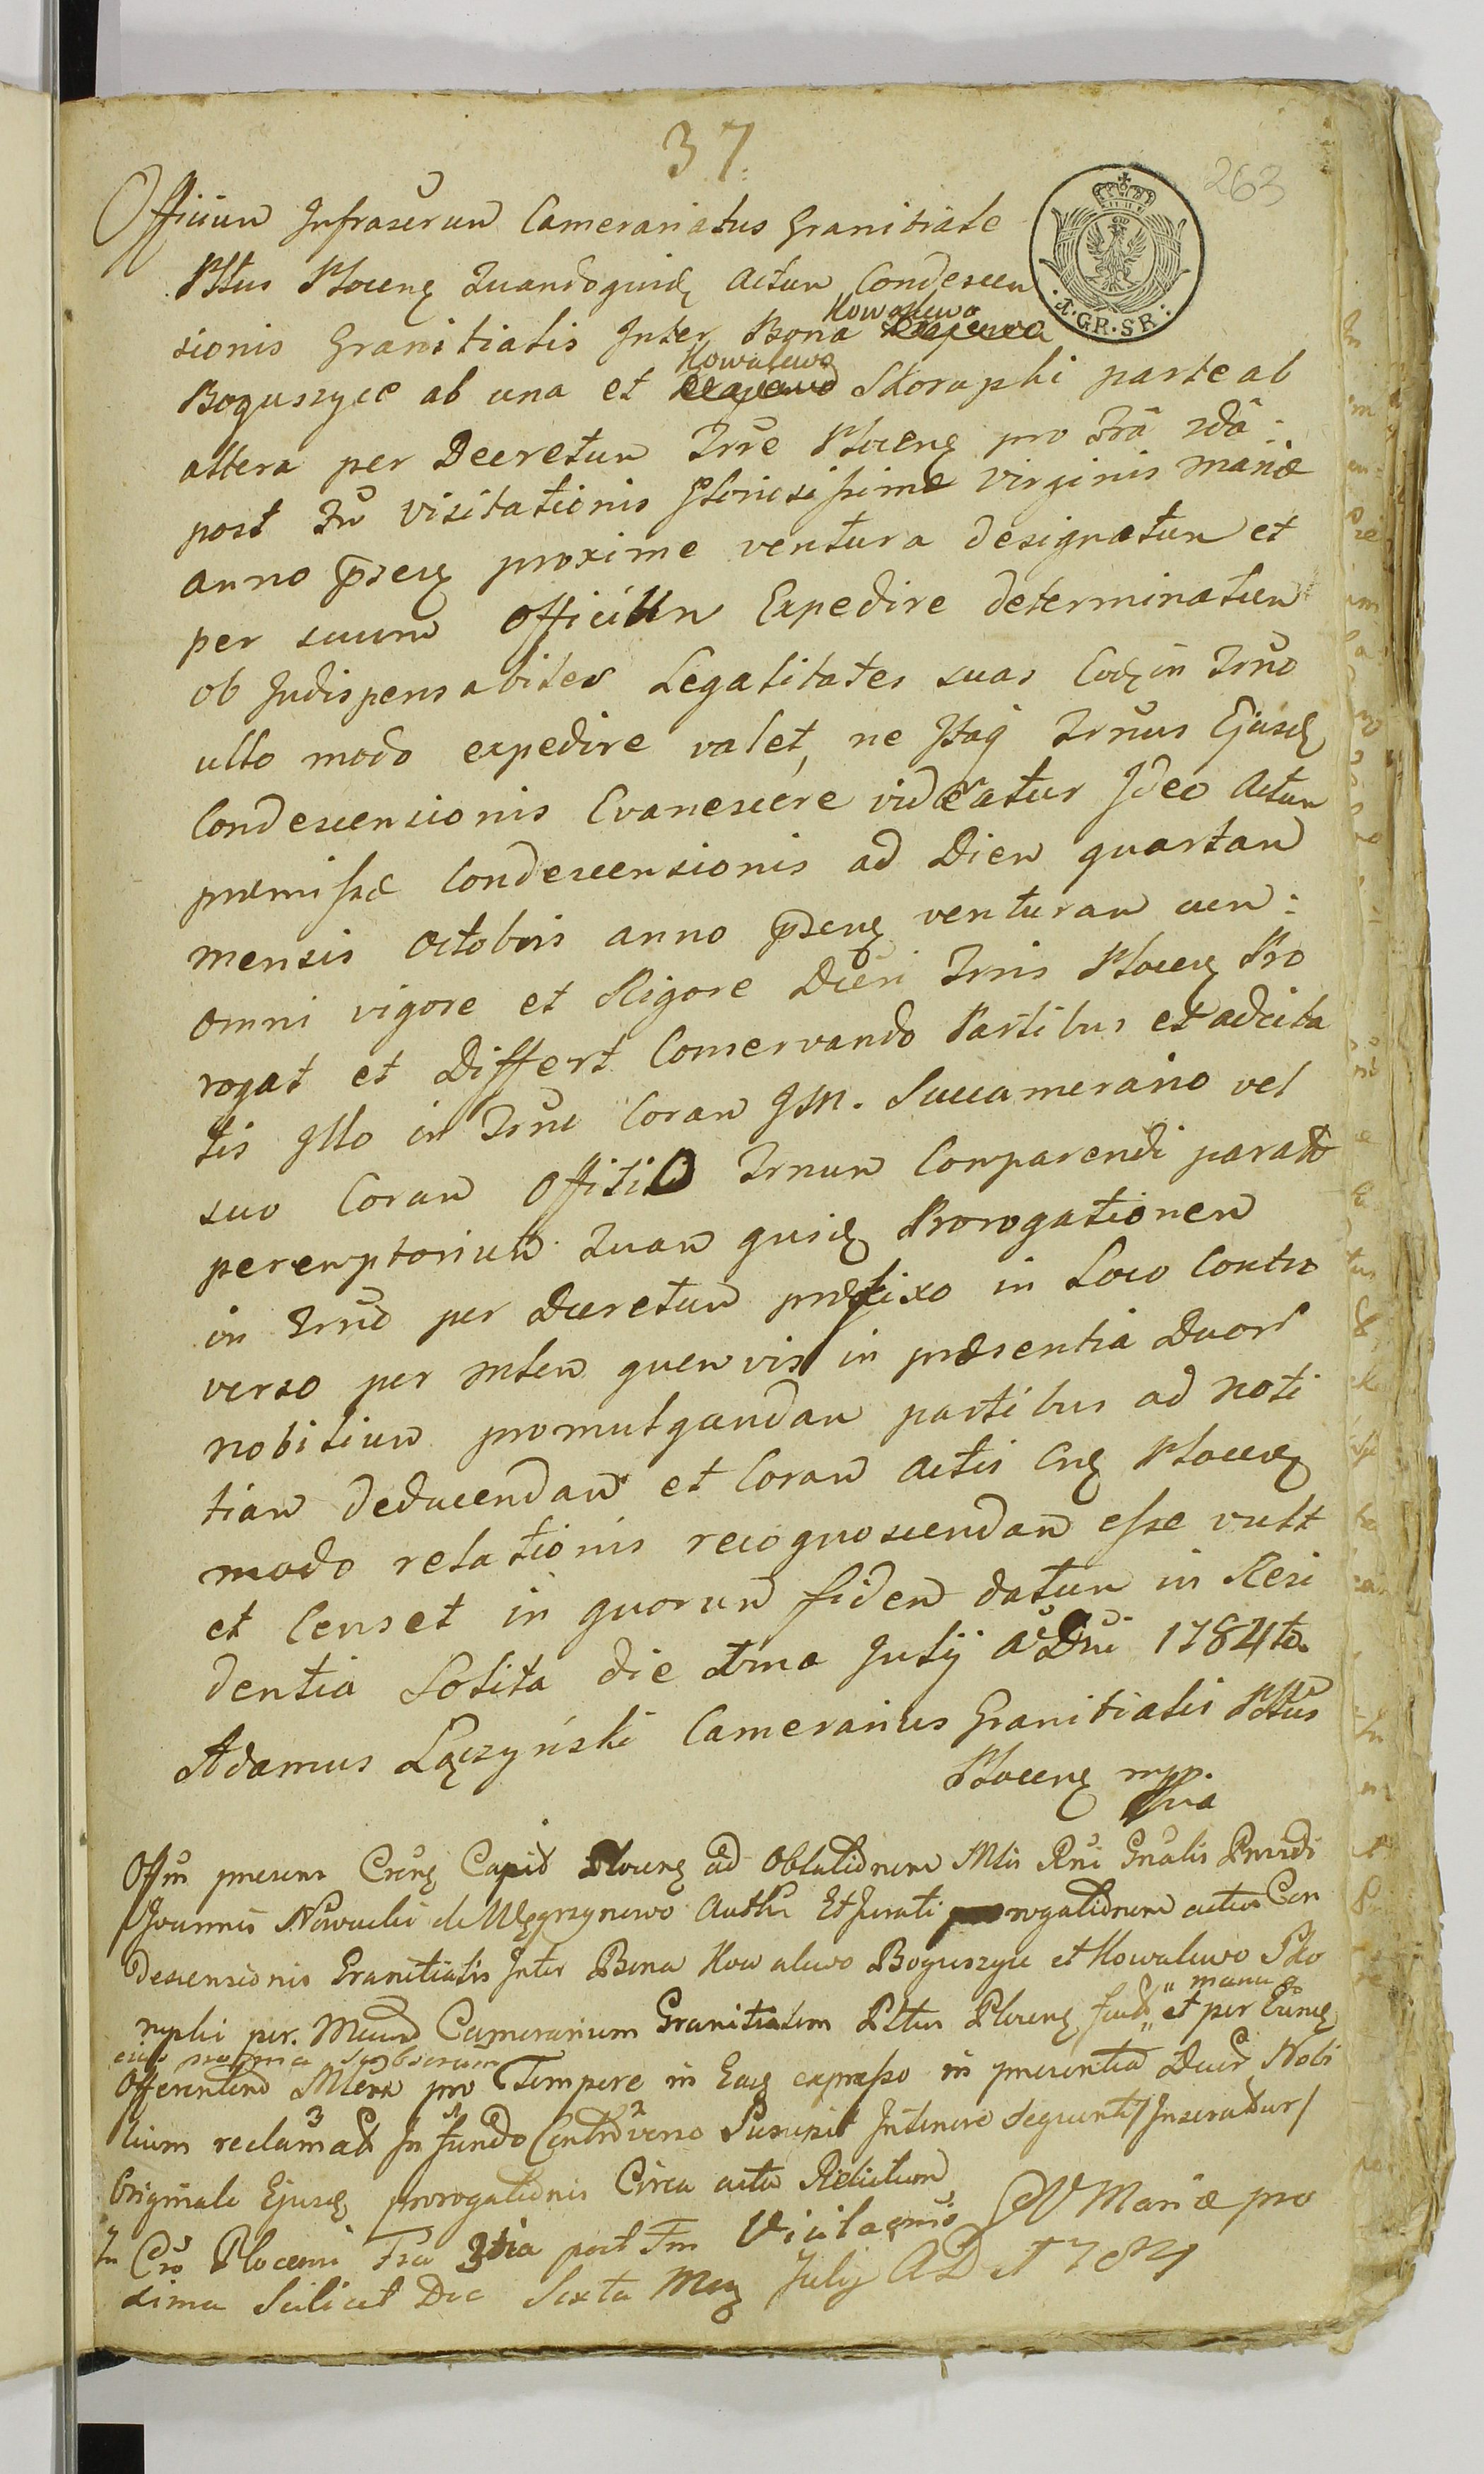 37.
263
Æ·GR·SR·
Officium Infrascrum Camerariatus Granitiale
Pttus Plocenę Quandoquidę actum Condescen
sionis Granitialis Inter Bona Kowalewo
Boguszyce ab una et Kowalewo Skorupki parte ab
altera per Decretum Trre Plocenę pro
post Visitationis Gloriosissimæ Virginis Mariæ
anno proxime ventura designatum et
per suum Officium Expedire determinatum
ob Indispensabiles Legalitates suas Eodę in Trno
ullo modo expedire valet, ne Itaq Trnus Ejusdę
Condescensionis Evanescere videatur Ideo Actum
præmissæ Condescensionis ad Diem quartam
mensis Octobris anno venturam cum:
omni vigore et Rigore Dećri Trris Plocenę Pro
rogat et Differt Conservando Partibus et adcita
tis Illo in Trno Coram Succamerario vel
suo Coram Offitio Trnum Comparendi
peremptorium Quam quidę Prorogationem
in Trno per Decretum præfixo in Loco Contro
verso per Mlem quemvis in præsentia Duor
nobilium promulgandam partibus ad noti
tiam deducendam et Coram Actis Plocenę
modo relationis recognoscendam esse vult
et Censet in quorum fidem datum in Resi
dentia Solita die 1ma July A Dni 1784to.
Adamus Łączyński Camerarius Granitialis Pttus
Plocenę mpp.
Offm præsens Capit Plocenę ad Oblationem Mtis Rni Gnalis Providi
Joannis Nowacki de Węgrzynowo Authi Et Jurati prorogationem actus Con
descensionis Granitialis Inter Bona Kowalewo Boguszyce et Kowalewo Sko
rupki per Camerarium Granitialem Pttus Plocenę " manu
ejus propria subscriptam " et per Eundę
Offerentem pro Tempore in Eaq expresso in præsentia Duor Nobi
lium reclamat In fundo Controverso Suscipit Inseratur/
Originale Ejusdę prorogationis Circa acta Relictum
In Plocensi Fra 3tia post Fm Visitaonis BV Mariæ pro
xima Scilicet Die Sexta July AD 1784